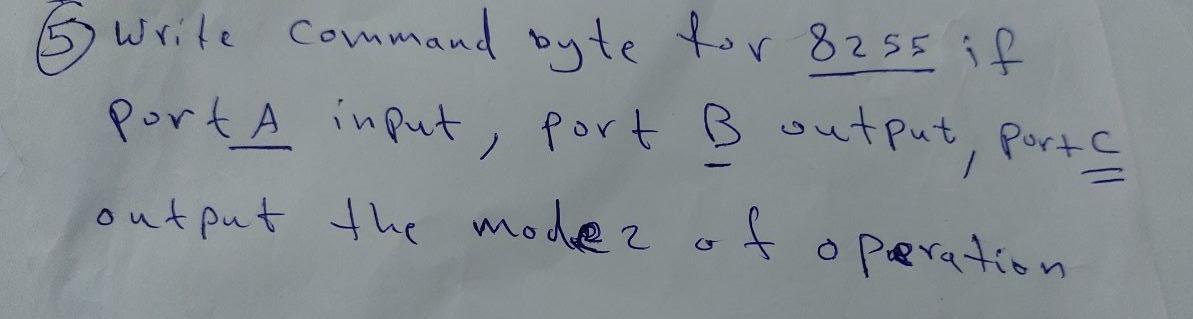 5 Write Command byte for 8255 if
Port A input, port B output, Port C
output the mode 2 of operation